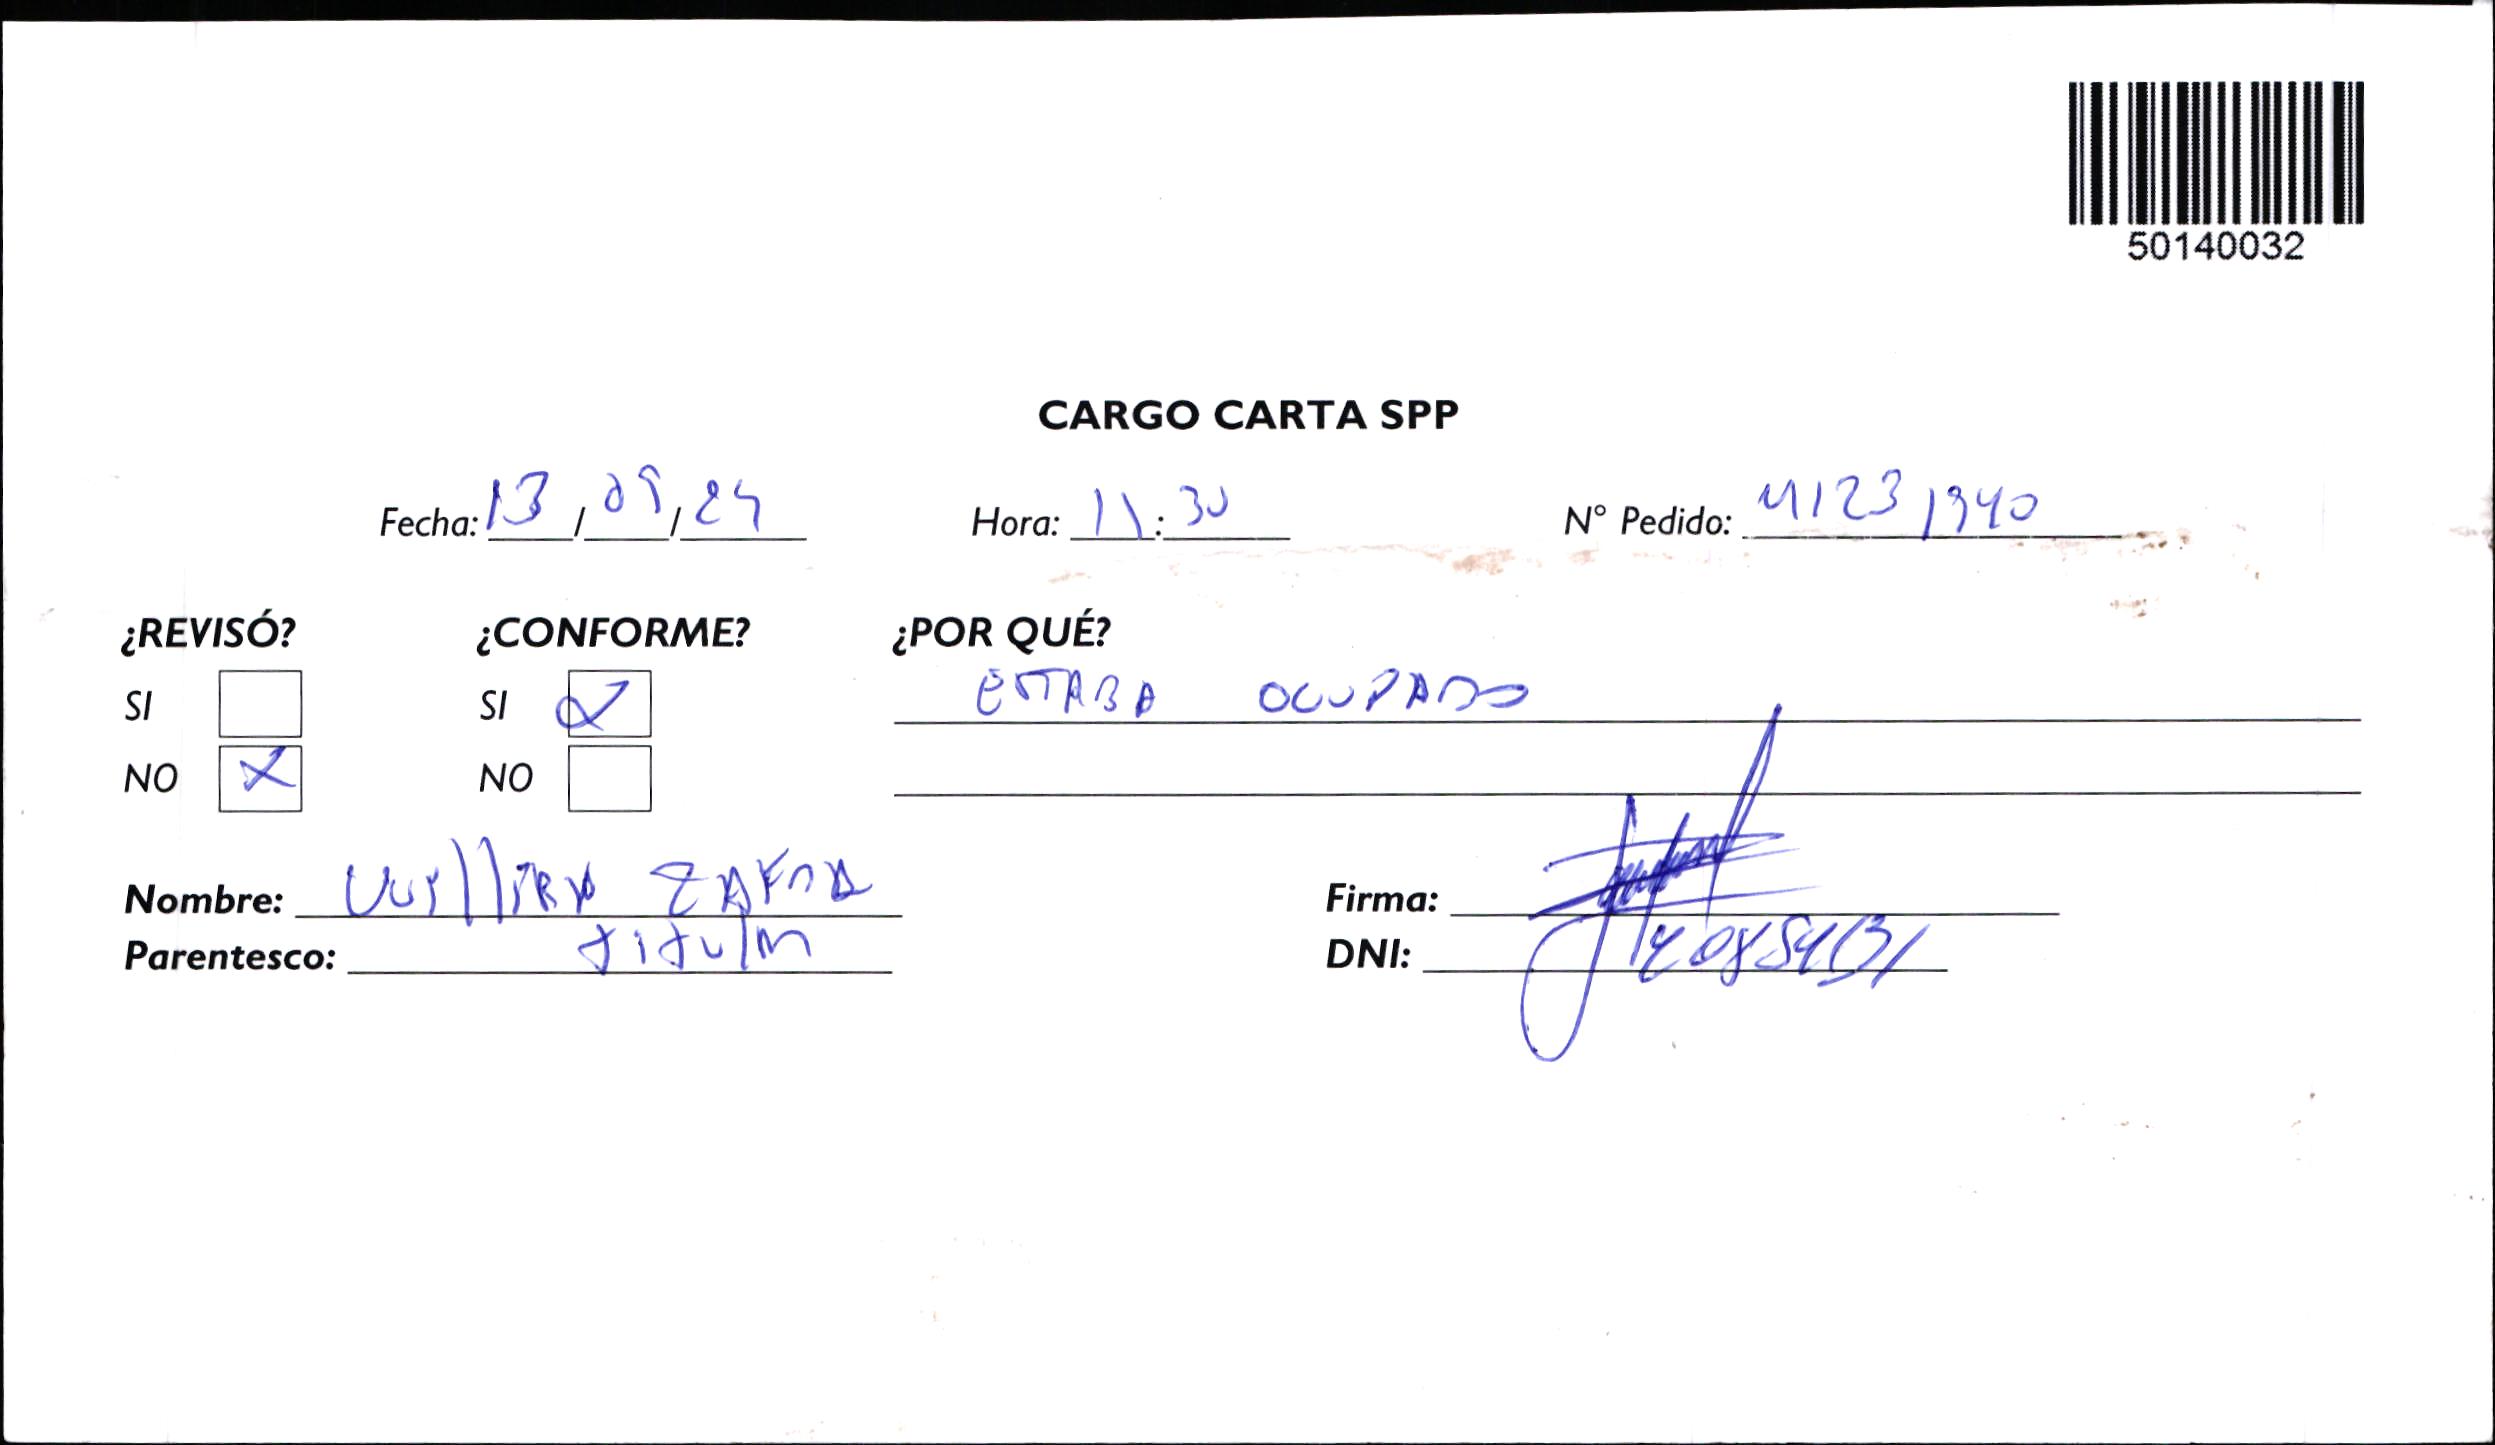 50140032
CARGO CARTA SPP
Fecha: 13/09/24 Hora: 11:30 N° Pedido: 41231940
¿REVISÓ? ¿CONFORME? ¿POR QUÉ?
SI SI ESTABA OCUPADO
NO NO
Nombre: Firma:
Parentesco: titular DNI: